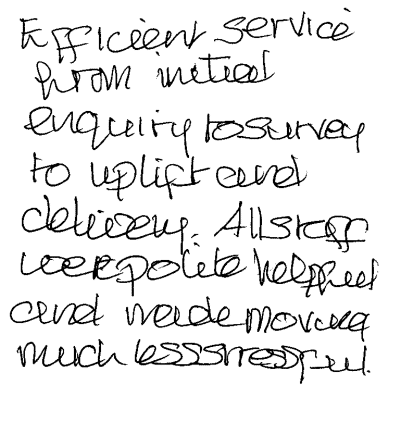 Efficient service
from initial
enquiry to survey
to uplift and
delivery. All staff
were polite helpful
and made moving
much less stressful.